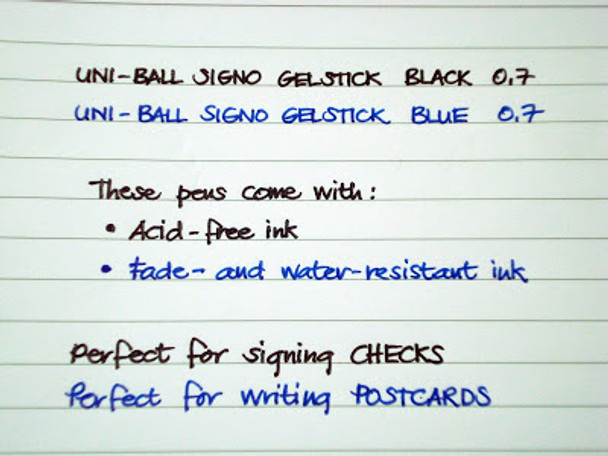 UNI-BALL SIGNO GELSTICK BLACK 0.7
UNI-BALL SIGNO GELSTICK BLUE 0.7
These pens come with:
• Acid-free ink
• Fade- and water-resistant ink
Perfect for signing CHECKS
Perfect for writing POSTCARDS